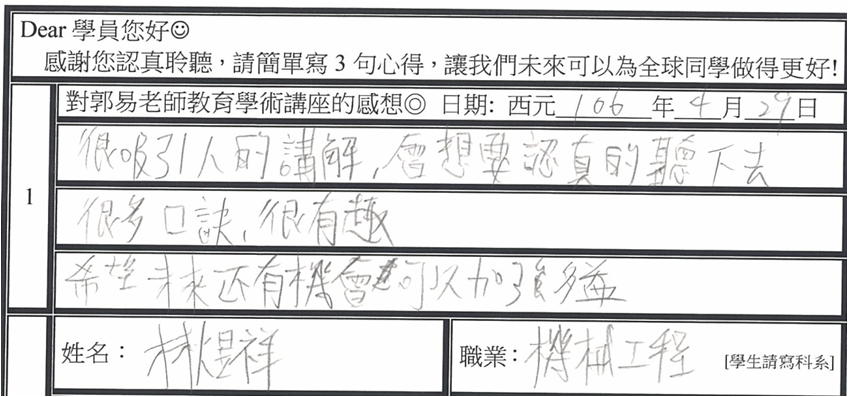 Dear 學員您好☺
感謝您認真聆聽，請簡單寫 3 句心得，讓我們未來可以為全球同學做得更好!
對郭易老師教育學術講座的感想◎ 日期: 西元 106 年 4 月 29 日
1
很吸引人的講解，會想要認真的聽下去
很多口訣，很有趣
希望未來还有機會可以加強多益
姓名： 林煜祥
職業： 機械工程 [學生請寫科系]